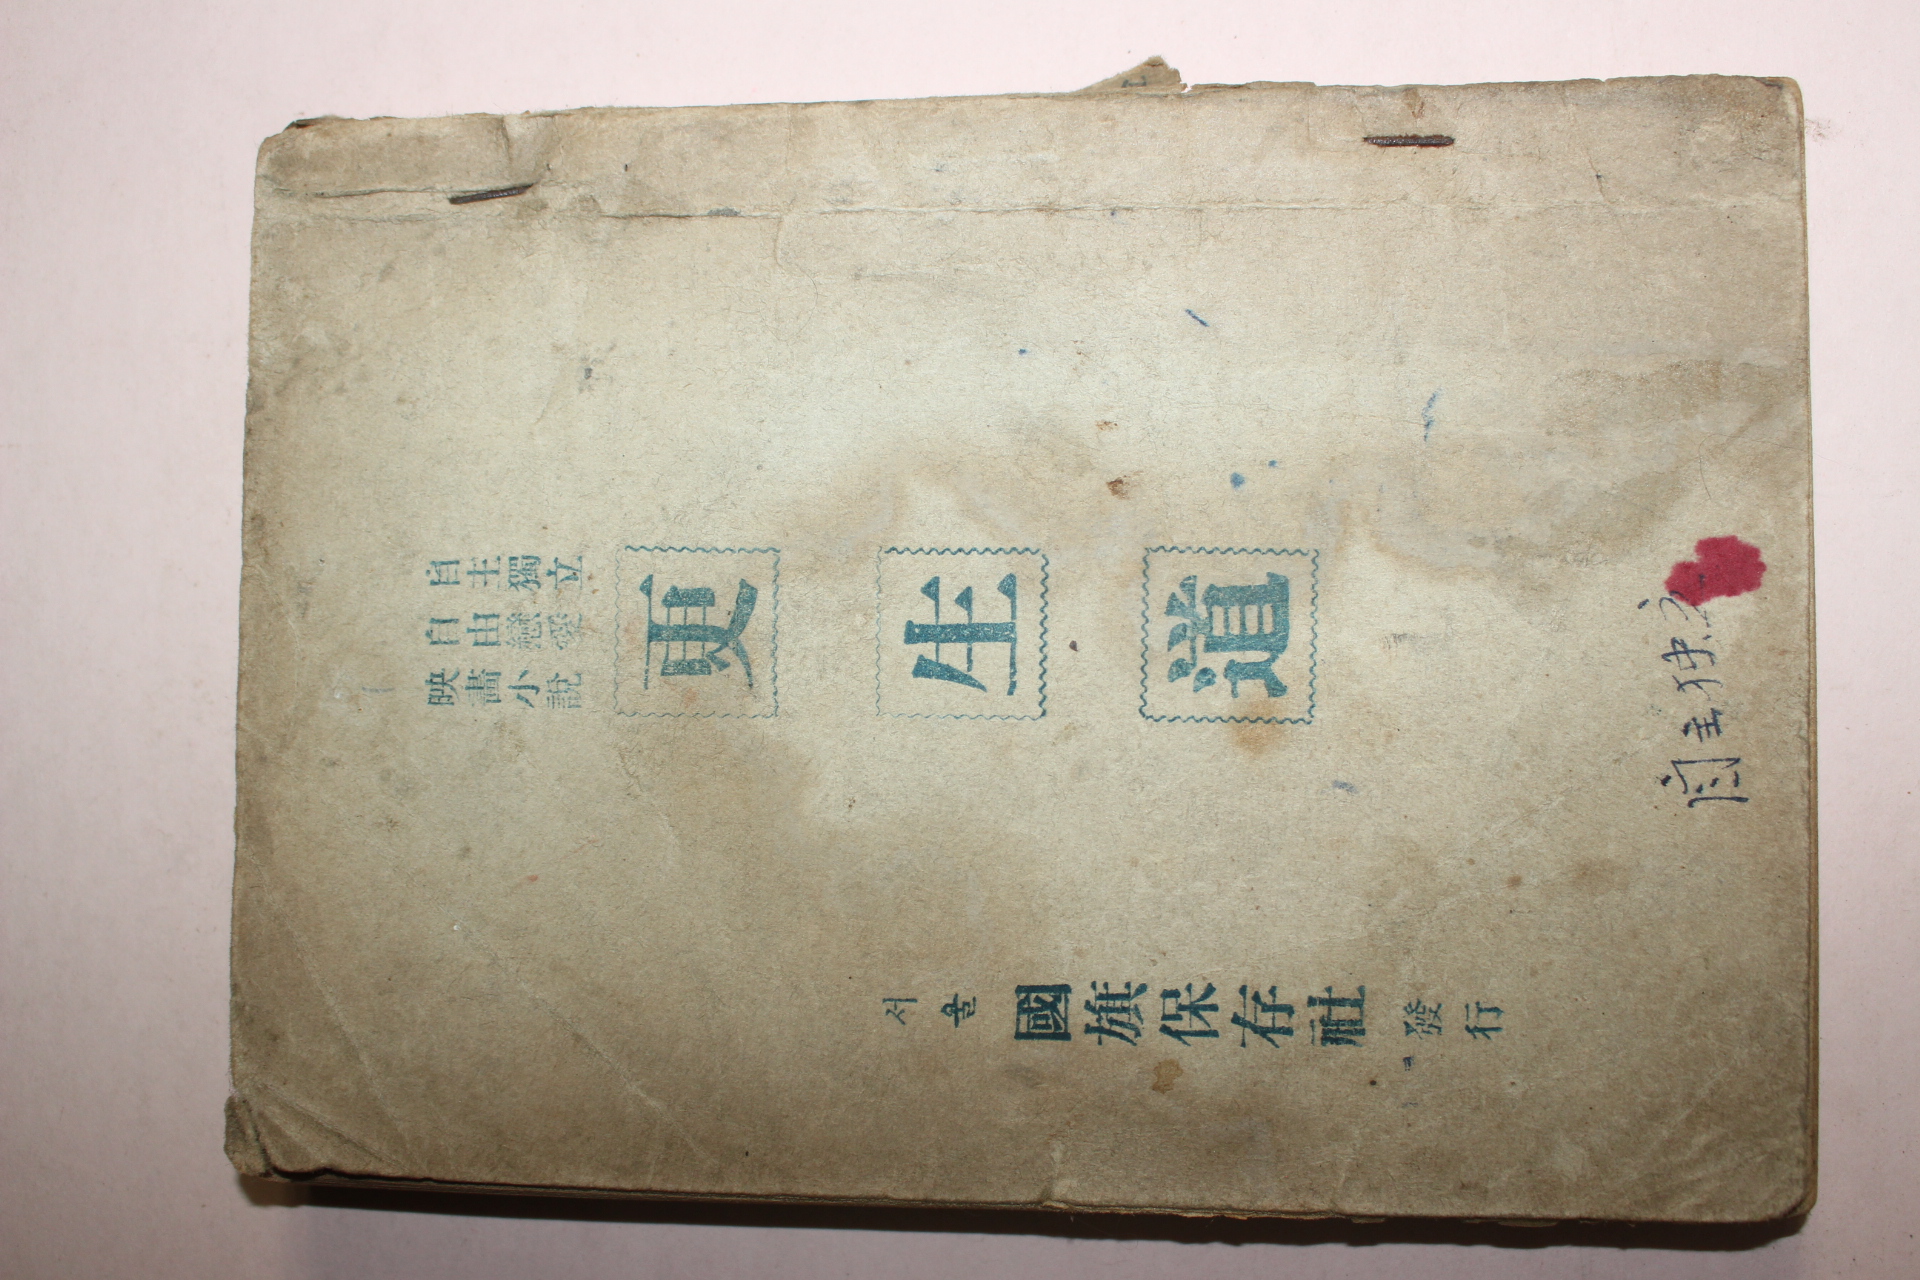 自主獨立
自由戀愛
映畵小說
更生道
서울 國旗保存社 發行
自主独立